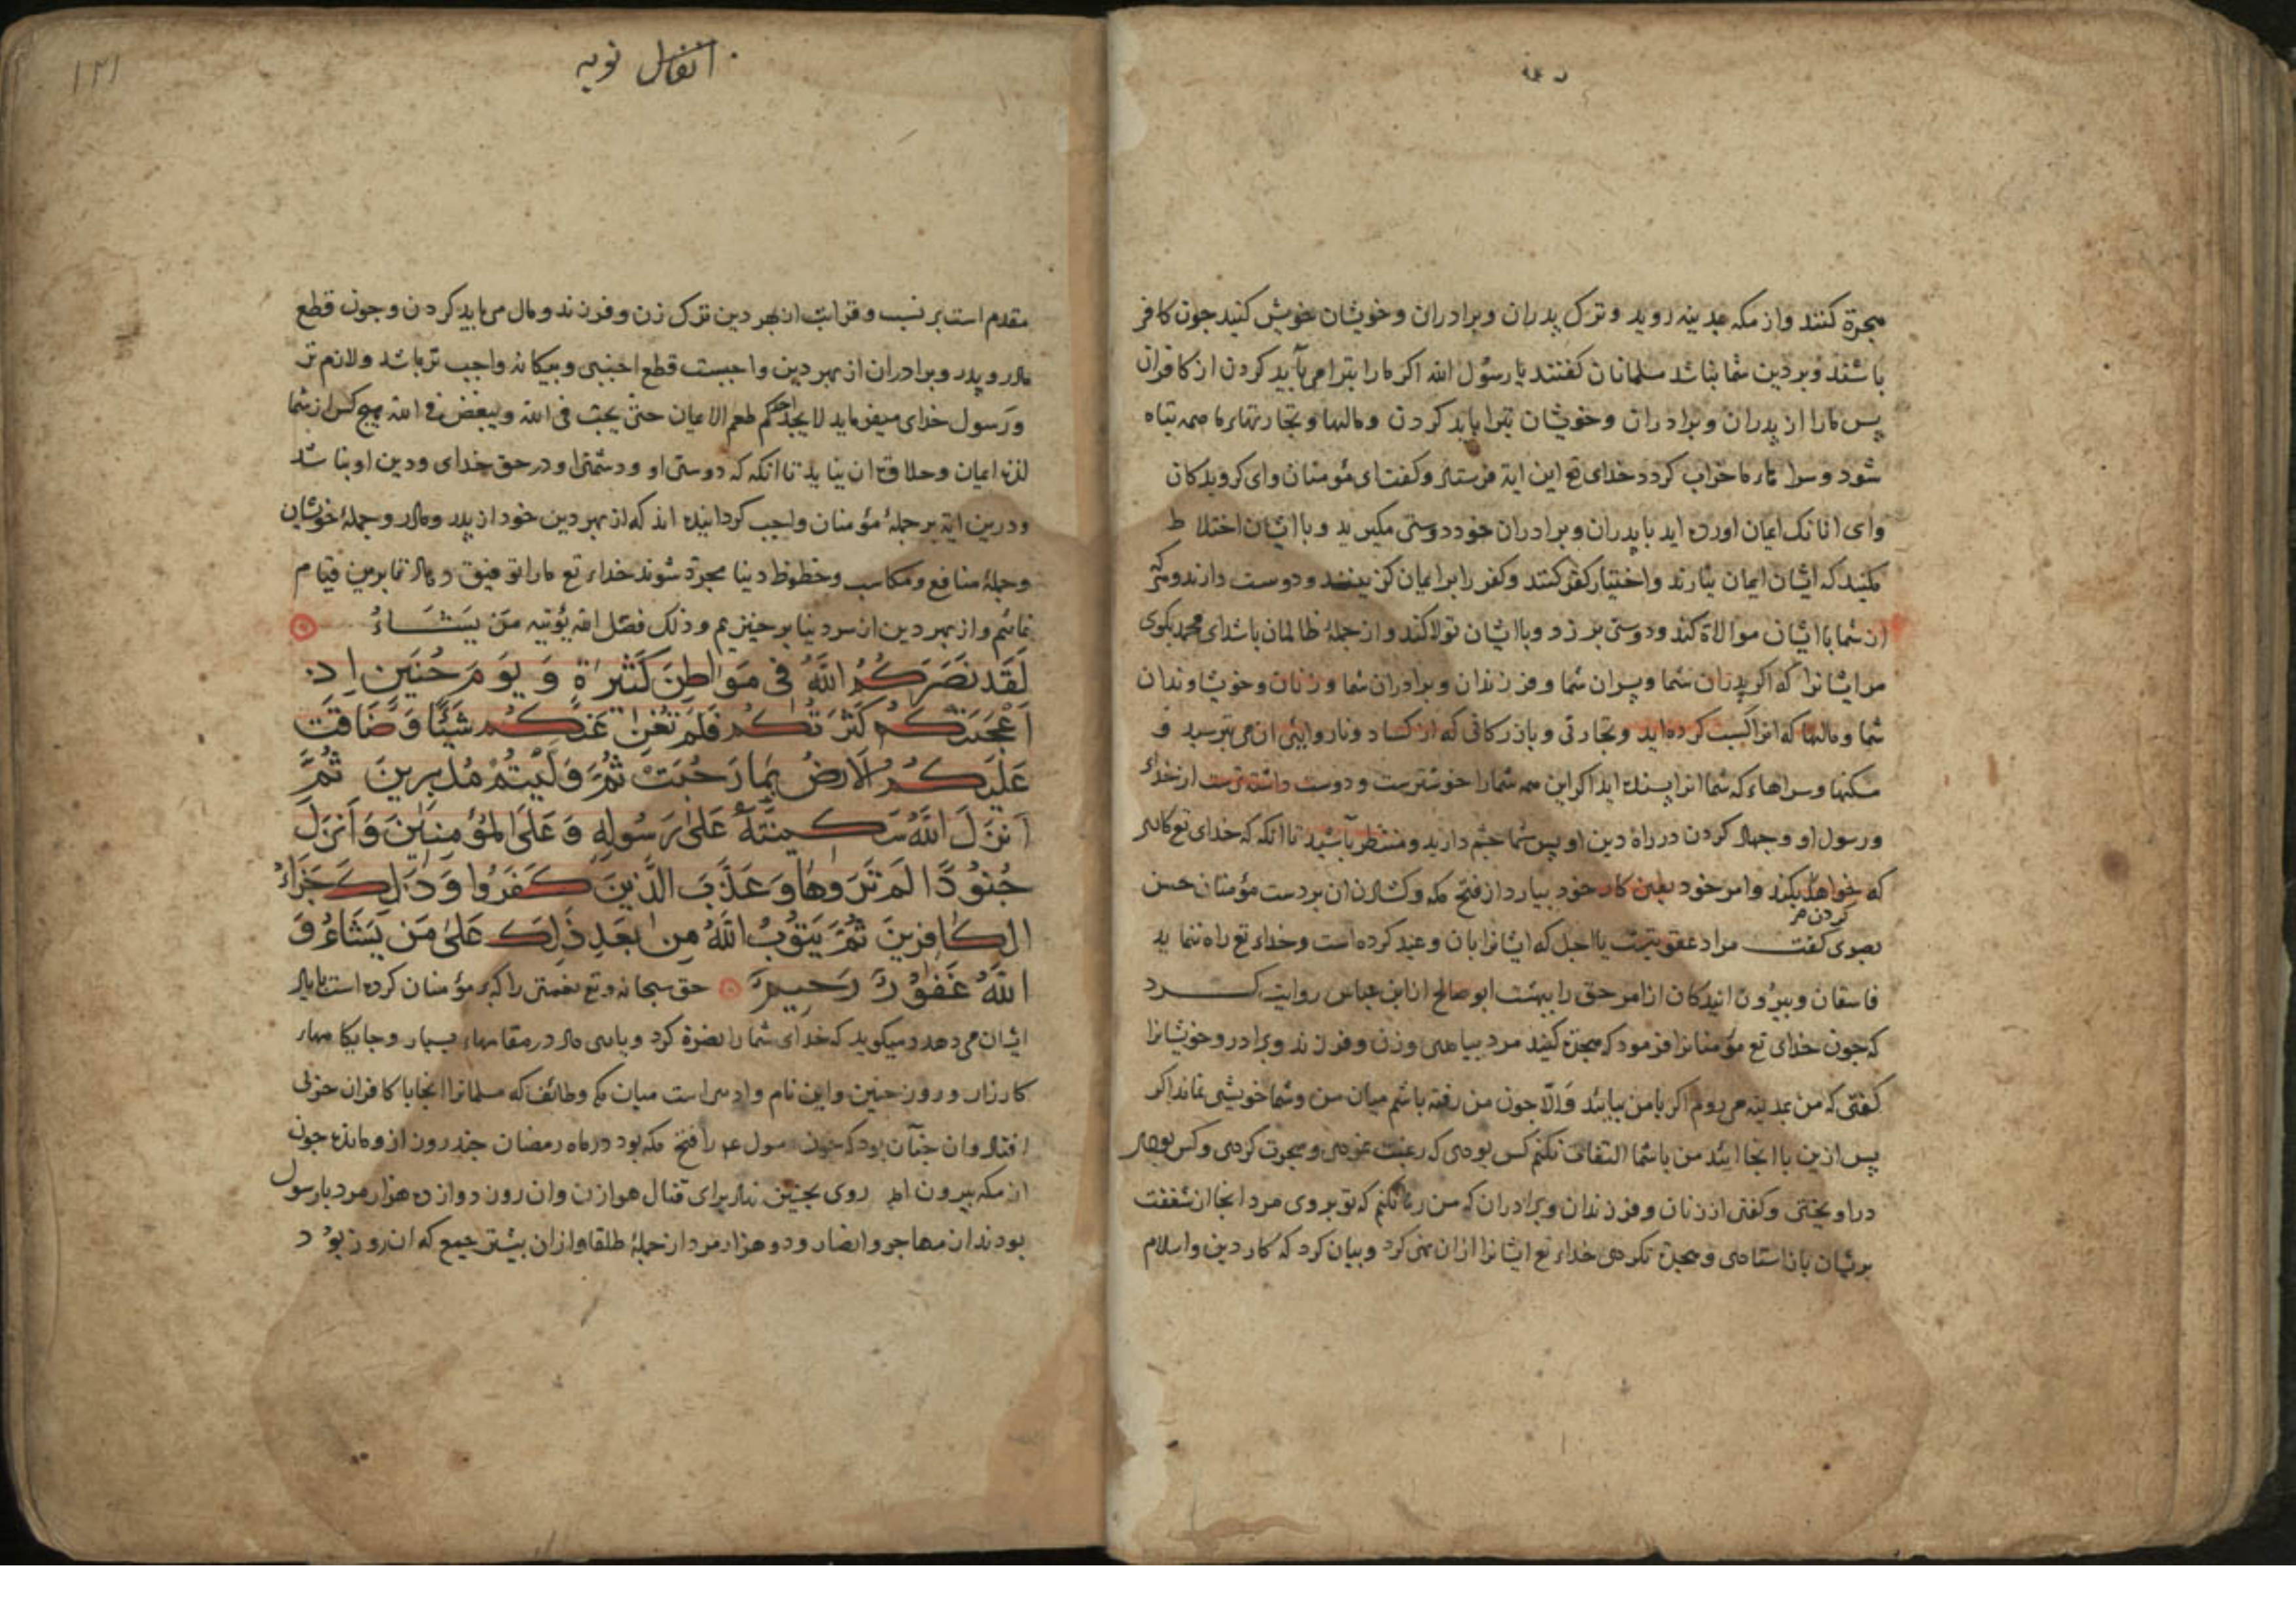 هجرة كنند واز مكه بمدينه رويد وترك پدران وبرادران وخويشان خويش كنيد جون كافر
باشند وبر دين شما نباشد مسلمانان كفتند يا رسول الله اكر مارا تبرا مى بايد كردن از كافران
پس مارا از پدران وبرادران وخويشان تبرا بايد كردن ومالها وتجارتهاء ما همه تباه
شود وسراهاء ما خراب كردد خداى تع اين اية فرستاد وكفت اى مؤمنان واى كرويدكان
واى انانك ايمان اورده ايد با پدران وبرادران خود دوستى مكيريد وبا ايشان اختلاط
مكنيد كه ايشان ايمان نيارند واختيار كفر كنند وكفر را بر ايمان كزينند ودوست دارند وهركه
از شما با ايشان موالاة كند ودوستى برزد وبا ايشان تولا كند واز جملهٔ ظالمان باشد اى محمد بكوى
مر ايشانرا كه اكر پدران شما وپسران شما وفرزندان وبرادران شما وزنان وخويشاوندان
شما ومالها كه انرا كسبت كرده ايد وتجارتى وبازركانى كه از كساد وناروايئى ان مى ترسيد و
مسكنها وسراهاء كه شما انرا پسنده ايد اكر اين همه شمارا خوشترست ودوست داشته ترست از خداء
ورسول او وجهاد كردن در راه دين او پس شما چشم داريد ومنتظر باشيد تا انكه كه خداى تع كارى
كه خواهد بكند وامر خود بعين كار خود بيارد از فتح مكه وكشادن ان بر دست مؤمنان حسن
كردن مر
بصرى كفت مراد عقوبتست يا اجل كه ايشانرا بان وعيد كرده است وخداء تع راه ننمايد
فاسقان وبيرون ايندكان از امر حق را ببهشت ابو صالح از ابن عباس روايت كرد
كه جون خداى تع مؤمنانرا فرمود كه هجرة كنيد مرد بيامدى وزن وفرزند وبرادر وخويشانرا
كفتى كه من بمدينه مى روم اكر با من بيائيد والا جون من رفته باشم ميان من وشما خويشى نماند اكر
پس ازين با انجا ائيد من با شما التفات نكنم كس بودى كه رغبت نمودى وهجرت كردى وكس بودى
در اويختى وكفتى از زنان وفرزندان وبرادران كه من رها نكنم كه تو بروى مرد انجا از شفقت
بريشان باز استادى وهجرة نكردى خداء تع ايشانرا ازان نهى كرد وبيان كرد كه كار دين واسلام
انفال توبه
۱۲۱
مقدم است بر نسب وقرابت از بهر دين ترك زن وفرزند ومال مى بايد كردن وجون قطع
مادر وپدر وبرادران از بهر دين واجبست قطع اجنبى وبيكانه واجب تر باشد ولازم تر
ورسول خداى ميفرمايد لا يجد احدكم طعم الايمان حتى يحب فى الله ويبغض فى الله هيچ كس از شما
لذت ايمان وحلاوة ان نيابد تا انكه كه دوستى او ودشمنى او در حق خداى ودين او نباشد
ودرين اية بر جملهٔ مؤمنان واجب كردانيده اند كه از بهر دين خود از پدر ومادر وجملهٔ خويشان
وجملهٔ منافع ومكاسب وحظوظ دنيا مجرد شوند خداء تع مارا توفيق دهاد تا برين قيام
نمائيم واز بهر دين از سر دنيا بر خيزيم وذلك فضل الله يؤتيه من يشاء
لَقَد نَصَرَكُمُ اللهُ فى مَوَاطِنَ كَثيرَةٍ وَيَومَ حُنَينٍ اِذ
اَعْجَبَتكُم كَثرَتُكُم فَلَم تُغنِ عَنكُم شَيئًا وَضَاقَت
عَلَيكُمُ الاَرضُ بِمَا رَحُبَتْ ثُمَّ وَلَّيتُم مُدبِرينَ ثُمَّ
اَنزَلَ اللهُ سَكينَتَهُ عَلى رَسُولِهِ وَعَلَى المُؤمِنينَ وَاَنزَلَ
جُنُودًا لَم تَرَوهَا وَعَذَّبَ الَّذينَ كَفَرُوا وَذلِكَ جَزَاءُ
الكَافِرينَ ثُمَّ يَتُوبُ اللهُ مِن بَعدِ ذلِكَ عَلى مَن يَشَاءُ وَ
اللهُ غَفُورٌ رَحيمٌ حق سبحانه وتع نعمتى را كه بر مؤمنان كرده است با ياد
ايشان مى دهد وميكويد كه خداى شما را نصرة كرد ويارى داد در مقامهاء بسيار وجايكاههاء
كارزار وروز حنين واين نام وادى است ميان مكه وطائف كه مسلمانرا انجا با كافران حربى
افتاد وان جنان بود كه جون رسول عم را فتح مكه بود در ماه رمضان جند روز ازو مانده جون
از مكه بيرون امد روى بحنين نهاد براى قتال هوازن وان روز دوازده هزار مرد با رسول
بودند از مهاجر وانصار ودو هزار مرد از جملهٔ طلقا وازان بيشتر جمع كه ان روز بود